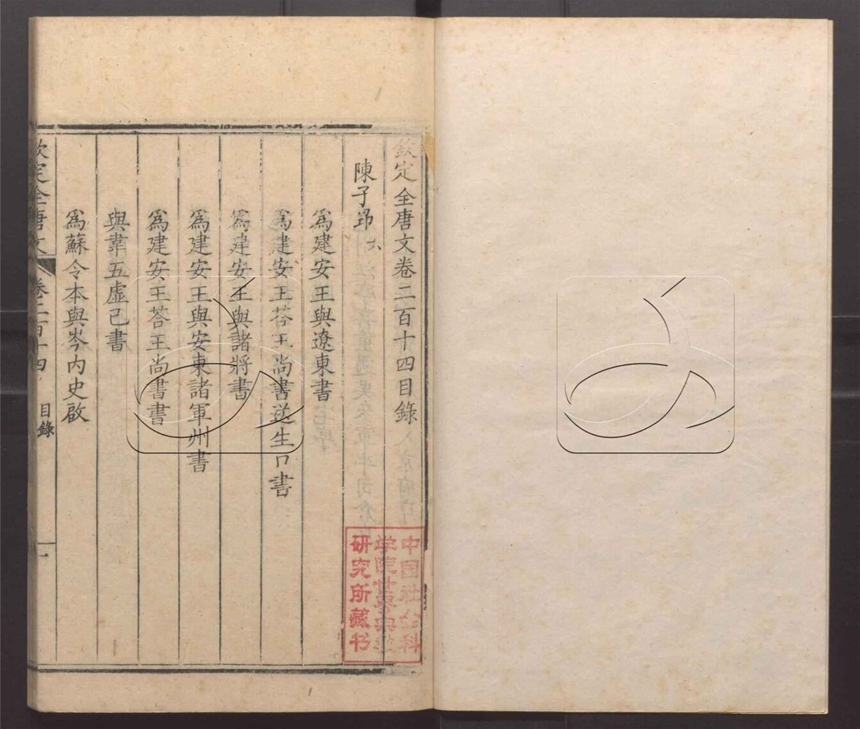 欽定全唐文卷二百十四目錄
陳子昂 六
為建安王與遼東書
為建安王荅王尚書送生口書
為建安王與諸將書
為建安王與安東諸軍州書
為建安王荅王尚書書
與韋五虛己書
為蘇令本與岑內史啟
欽定全唐文 卷二百十四 目錄 一
中国社会科
学院世界历史
研究所藏书